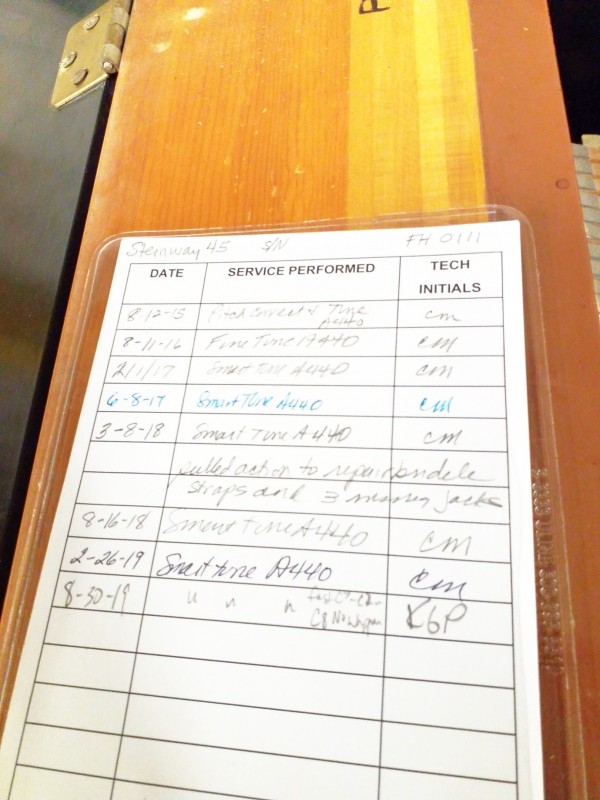 P
Steinway 45 S/N FH 0111
DATE SERVICE PERFORMED TECH INITIALS
8-12-15 Pitch correct & Tune A440 cm
8-11-16 Fine Tune A440 cm
2/1/17 Smart Tune A440 cm
6-8-17 Smart Tune A440 cm
3-8-18 Smart Tune A440 cm
pulled action to repair bridle
straps and 3 missing jacks
8-16-18 Smart Tune A440 cm
2-26-19 Smart tune A440 cm
8-30-19 " " " KGP
C8 No